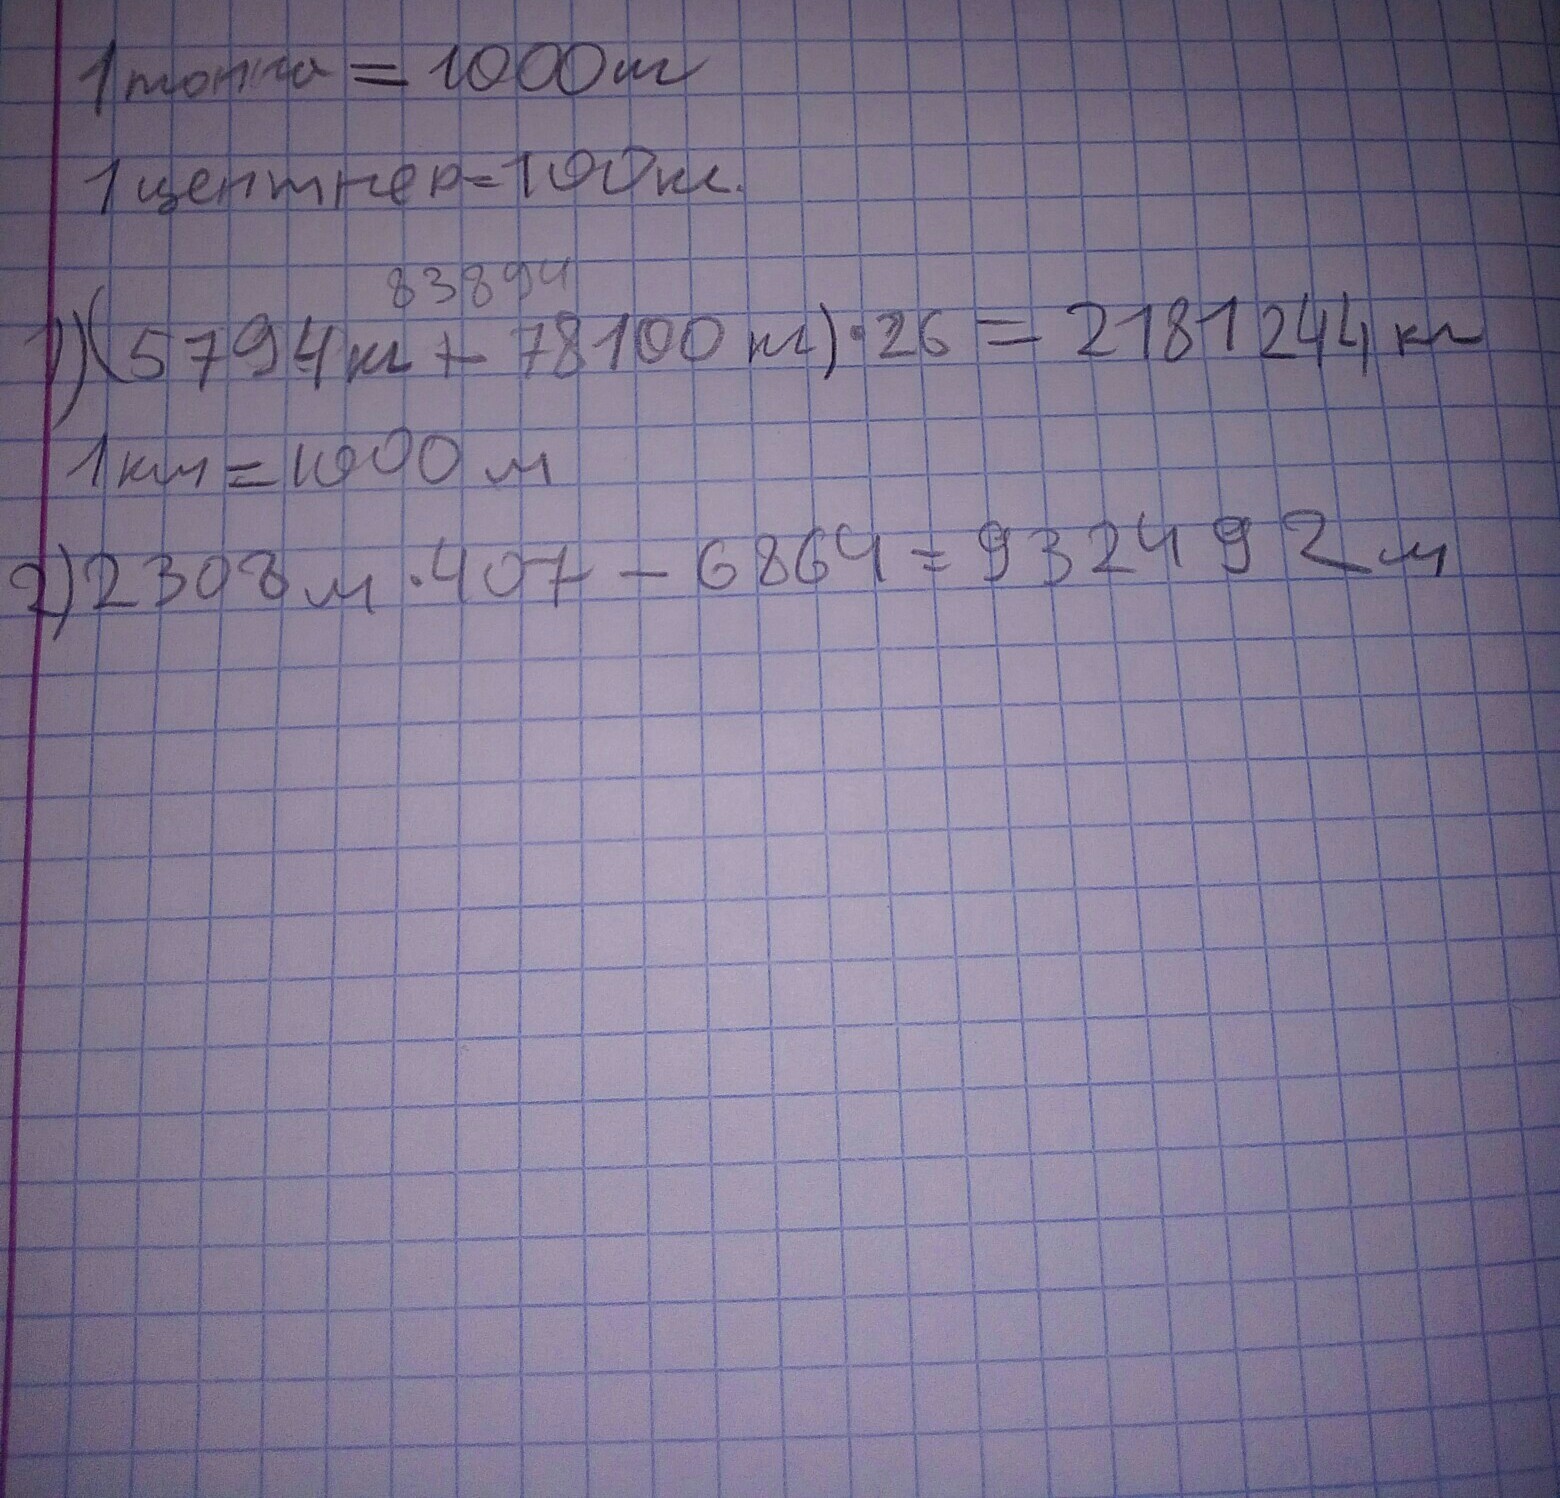 1 тонна = 1000 кг
1 центнер = 100 кг.
83894
1) (5794 кг + 78100 кг) · 26 = 2181244 кг
1 км = 1000 м
2) 2308 м · 407 - 6864 = 932492 м